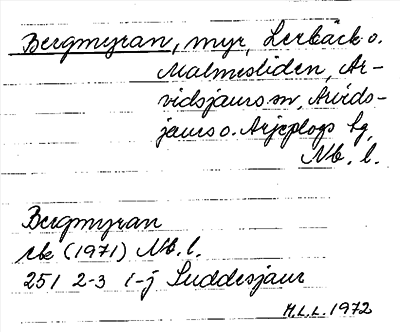 Bergmyran, myr, Lerbäck o.
Malmesliden, Ar-
vidsjaurs sn, Arvids-
jaurs o. Arjeplogs tg,
Nb. l.
Bergmyran
rbc (1971) Nb. l.
25 I 2-3 i-j Suddesjaur
M.L.L. 1972